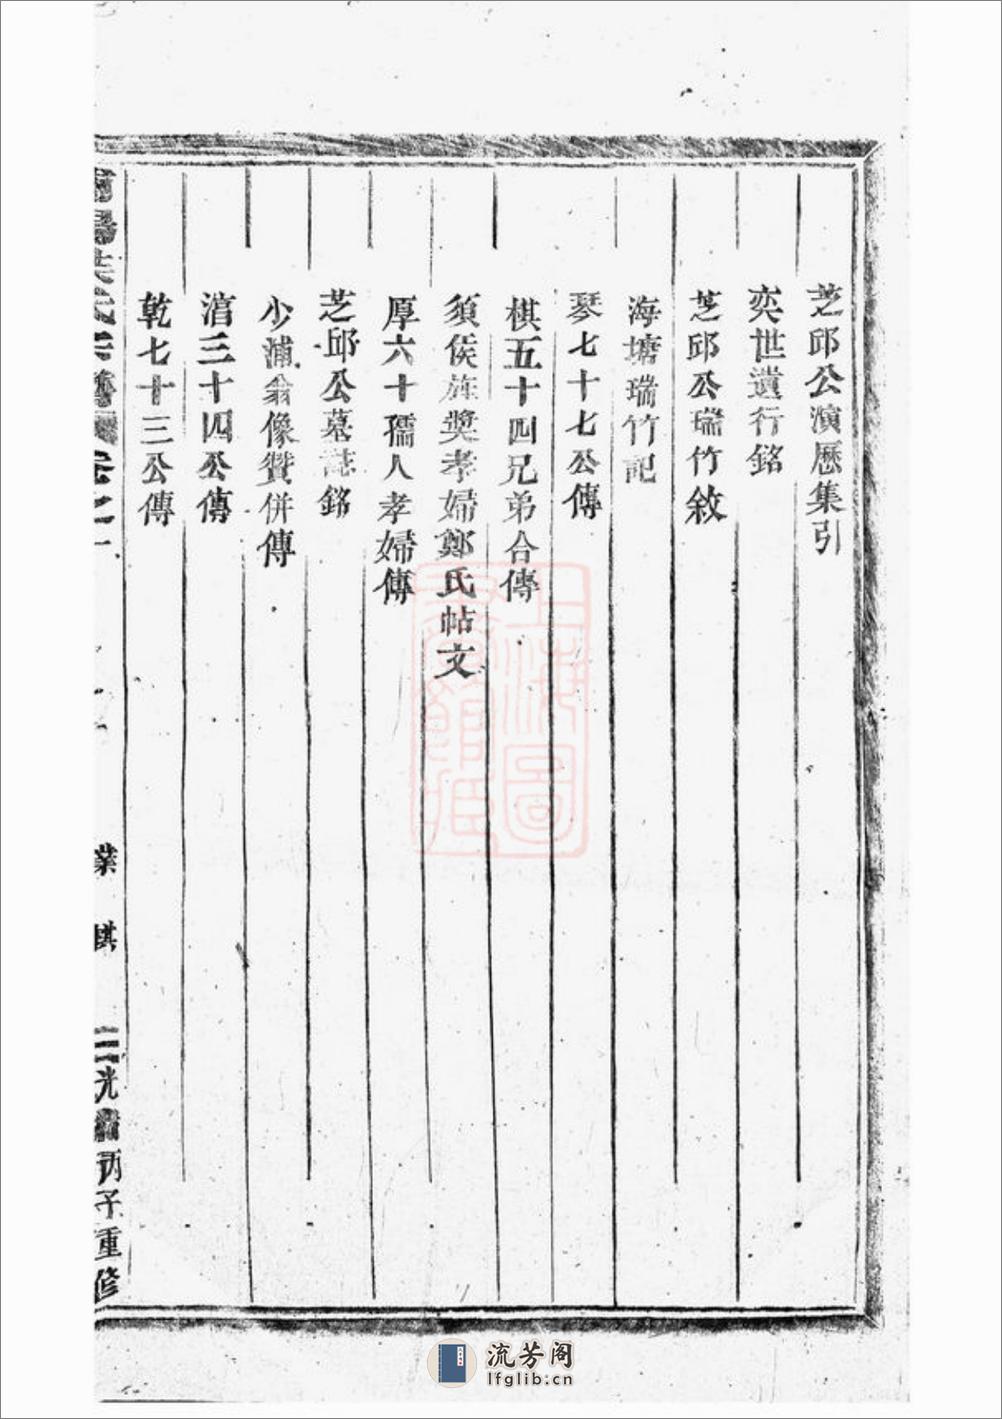 芝邱公演歷集引
奕世遺行銘
芝邱公瑞竹敘
海塘瑞竹記
琴七十七公傳
棋五十四兄弟合傳
須侯旌奬孝婦鄭氏帖文
厚六十孺人孝婦傳
芝邱公墓誌銘
少浦翁像贊併傳
涫三十四公傳
乾七十三公傳
南陽葉氏宗譜 卷之一
業 棋
二 光緒丙子重修
上海圖
書館藏
流芳阁
lfglib.cn